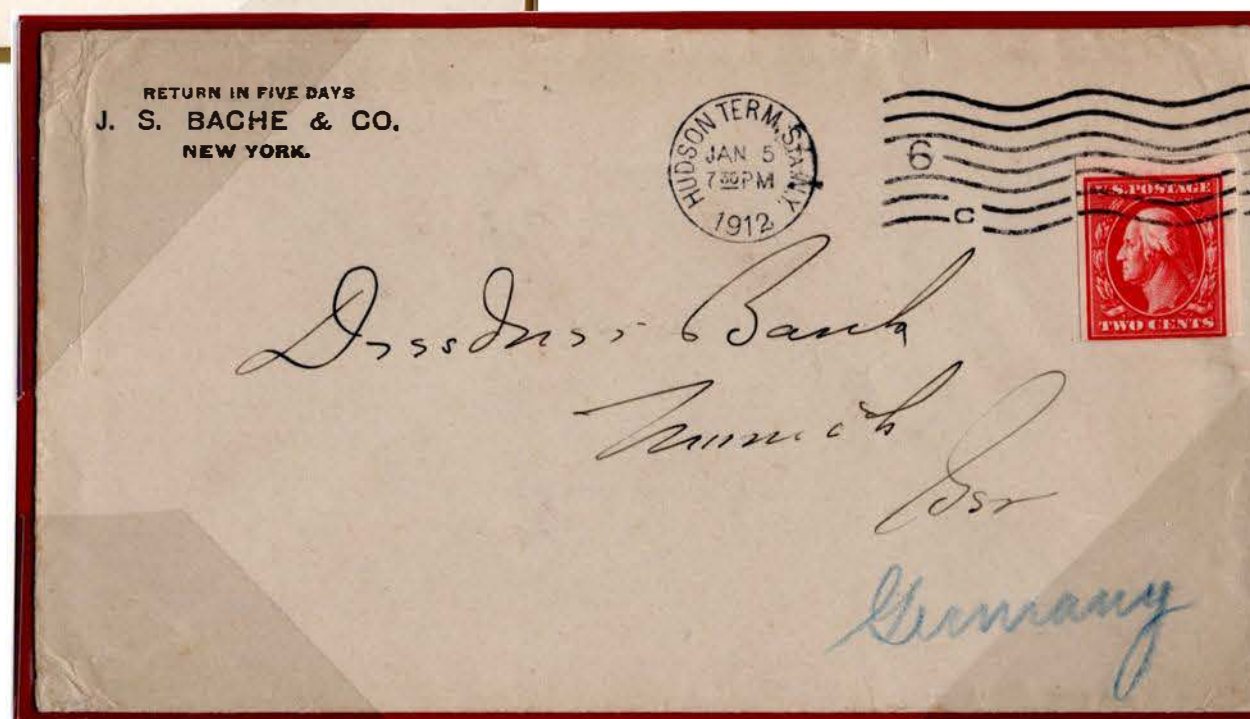 RETURN IN FIVE DAYS
J. S. BACHE & CO.
NEW YORK.
HUDSON TERM. STA. N.Y.
JAN 5
7 30 PM
1912
6
C
U.S. POSTAGE
TWO CENTS
Dresdner Bank
Munich
Ger
Germany